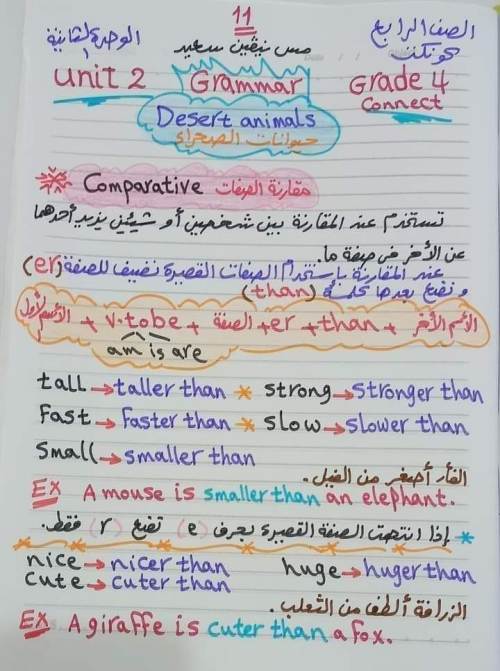 11
الصف الرابع
كونكت
مس نيڤين سعيد
الوحدة الثانية
Date / /
Unit 2 Grammar Grade 4
Connect
Desert animals
حيوانات الصحراء
Comparative مقارنة الصفات
تستخدم عند المقارنة بين شخصين أو شيئين يزيد أحدهما
عن الأخر فى صفة ما.
عند المقارنة باستخدام الصفات القصيرة نضيف للصفة (er)
و نضع بعدها كلمة (than)
الأسم الأول + v.to be + الصفة + er + than + الأسم الأخر
am is are
tall → taller than * strong → stronger than
Fast → faster than * slow → slower than
Small → smaller than
الفأر أصغر من الفيل.
EX A mouse is smaller than an elephant.
* إذا انتهت الصفة القصيرة بحرف (e) نضع (r) فقط.
nice → nicer than huge → huger than
cute → cuter than
الزرافة ألطف من الثعلب.
EX A giraffe is cuter than a fox.